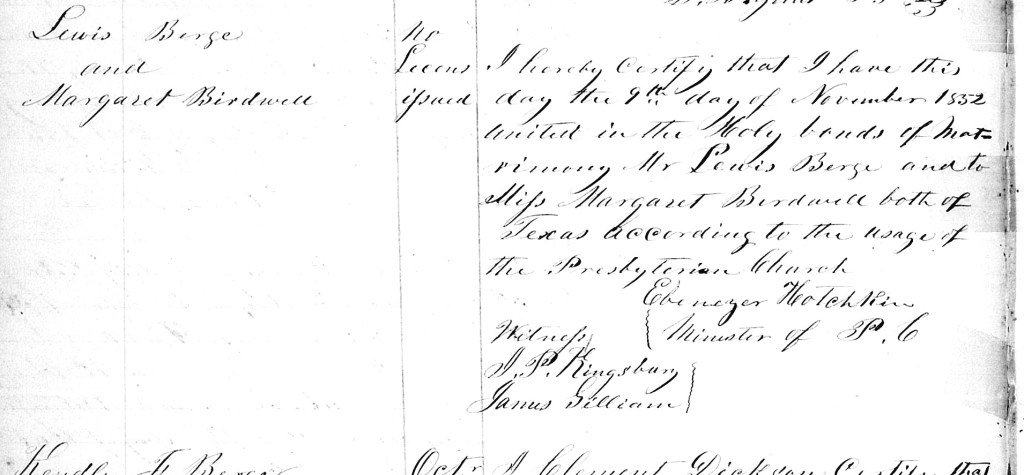 Lewis Berge
and
Margaret Birdwell
no
Licens
issued
I hereby Certify that I have this
day the 9th day of November 1852
united in the Holy bonds of Mat-
rimony Mr Lewis Berge and to
Miss Margaret Birdwell both of
Texas according to the usage of
the Presbyterian Church
Ebenezer Hotchkin
Minister of P. C
Witness
J. P. Kingsbury
James Gilliam
F Berge
Octr
I Clement Dickson Certify that